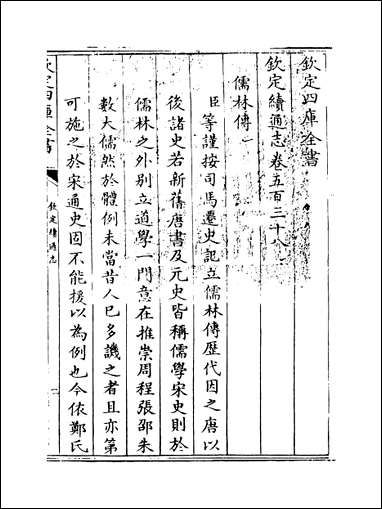 欽定四庫全書
欽定續通志卷五百三十八
儒林傳一
臣等謹按司馬遷史記立儒林傳歷代因之唐以
後諸史若新舊唐書及元史皆稱儒學宋史則於
儒林之外別立道學一門意在推崇周程張邵朱
數大儒然於體例未當昔人已多譏之者且亦第
可施之於宋通史固不能援以為例也今依鄭氏
欽定四庫全書
欽定續通志